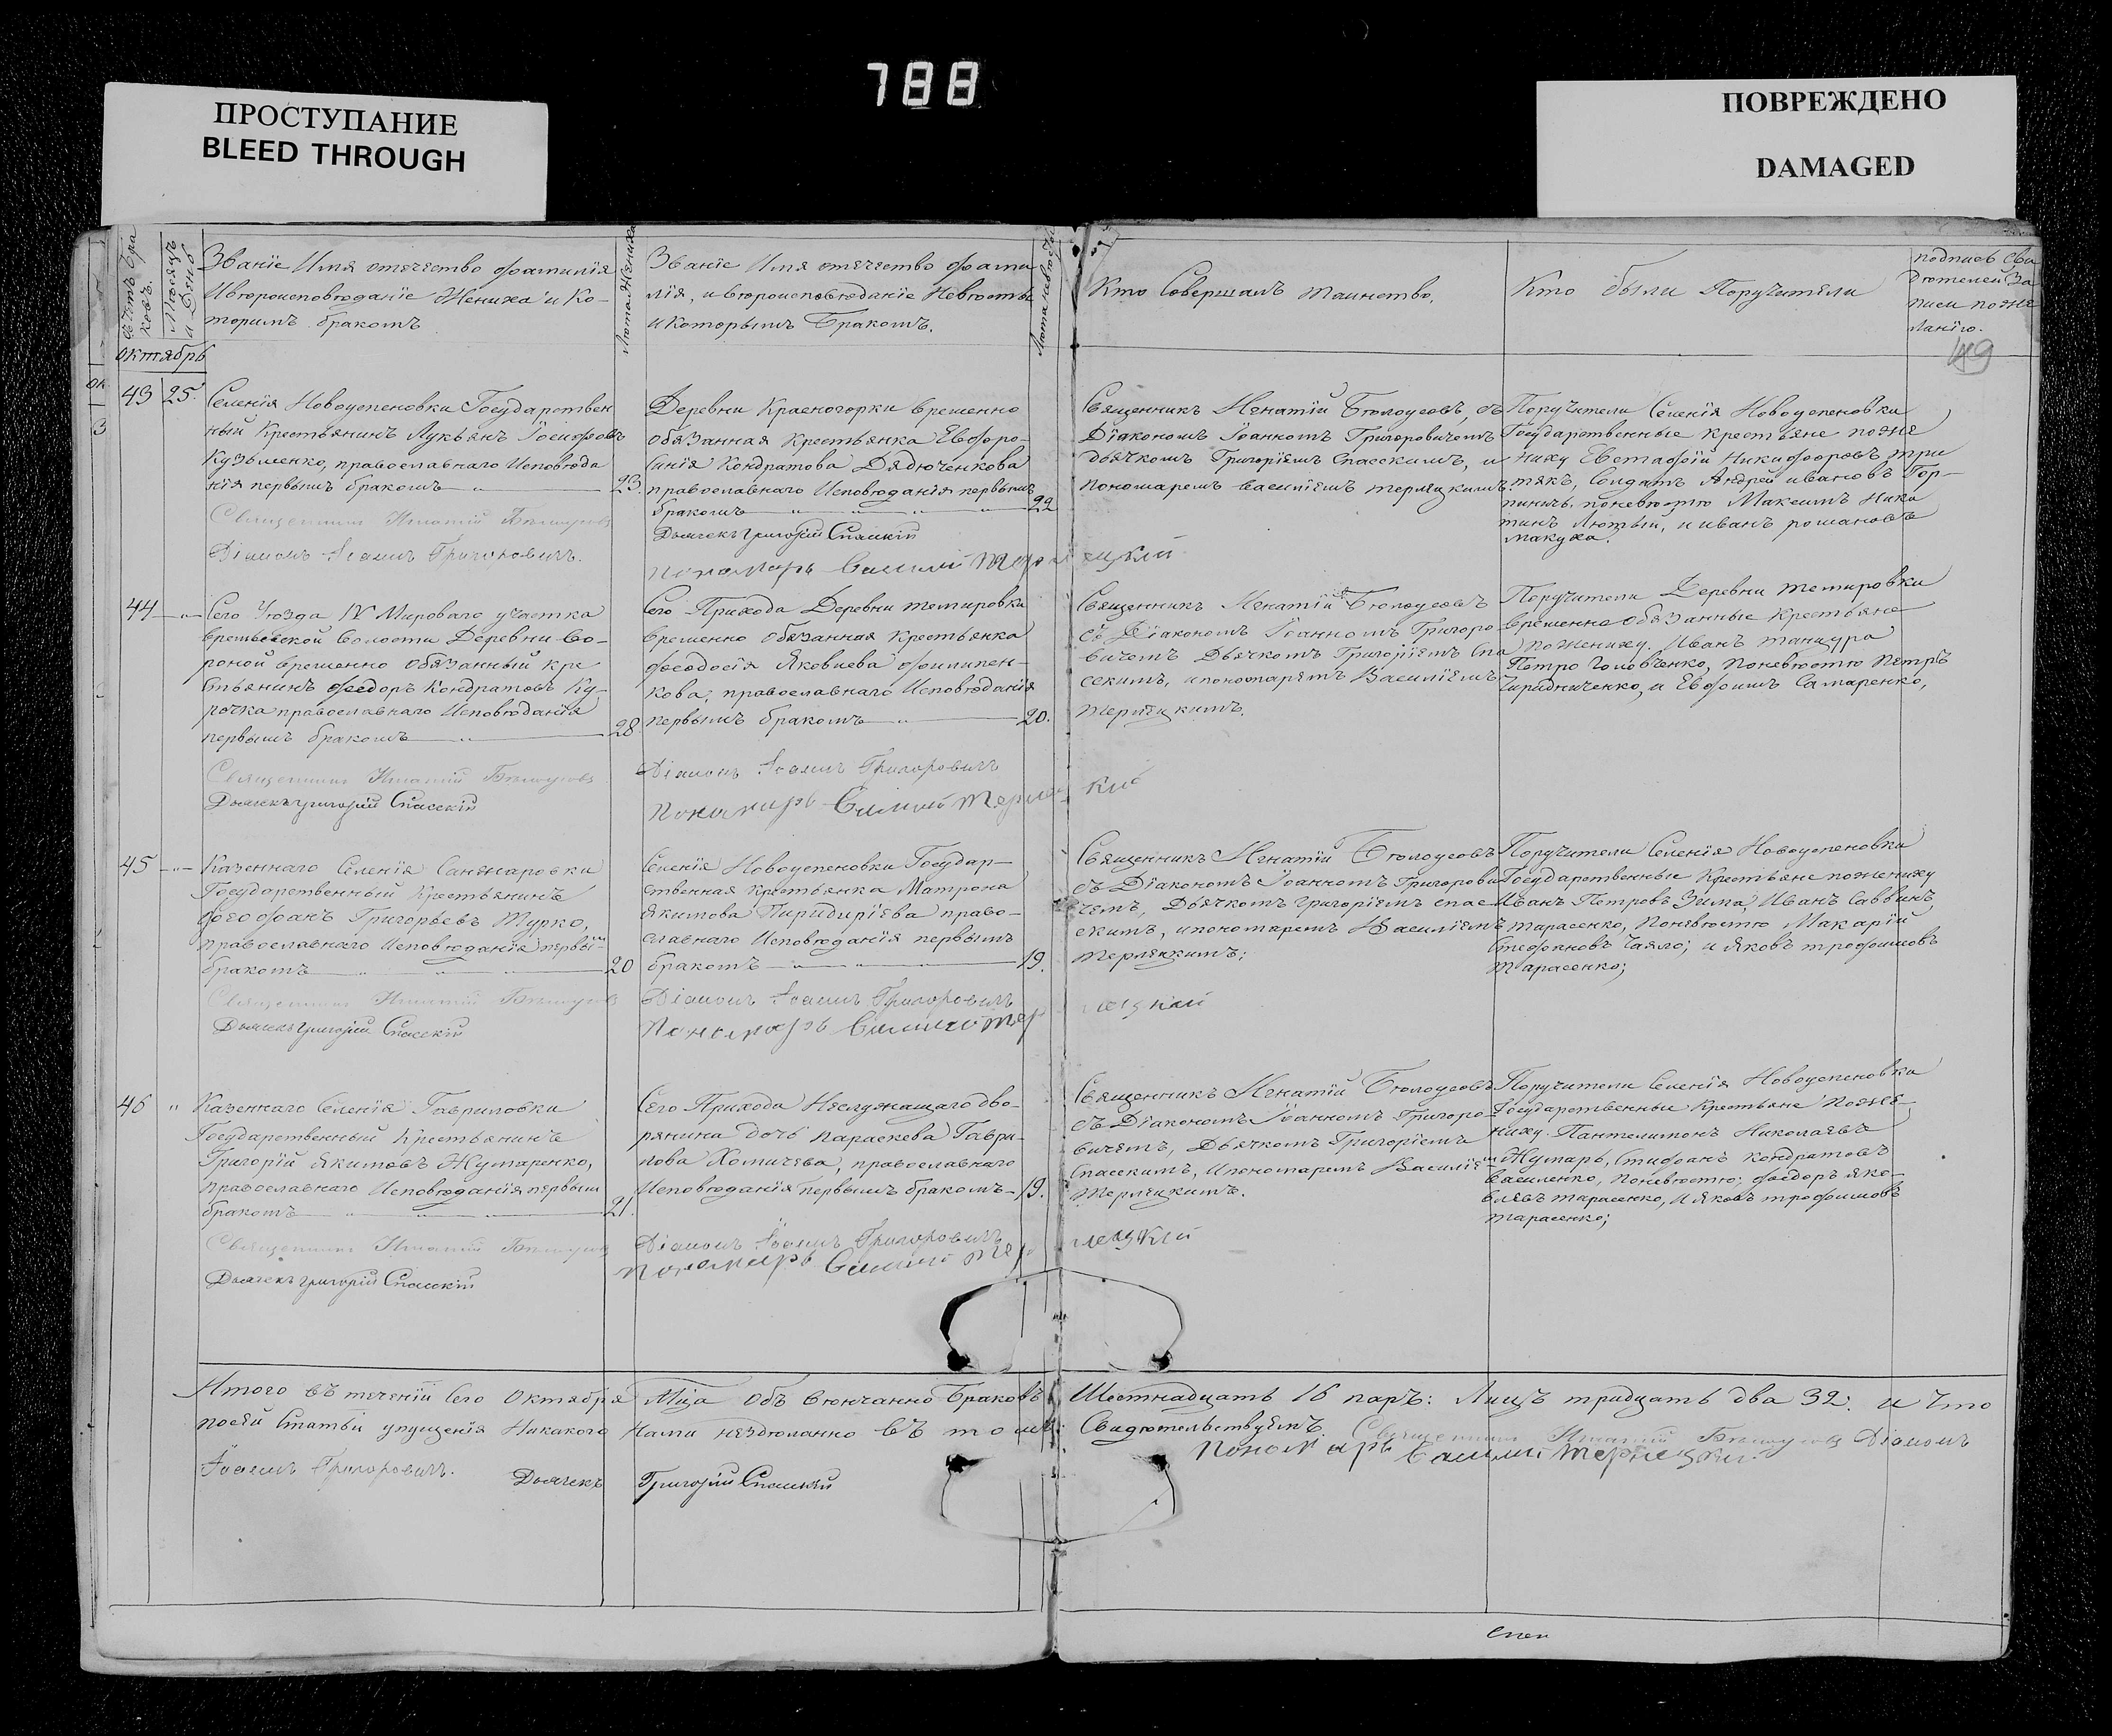 788
ПРОСТУПАНИЕ
BLEED THROUGH
ПОВРЕЖДЕНО
DAMAGED
Счетъ Бра
ковъ.
Мѣсяцъ
и День
Званіе Имя отечество фамилія
Ивѣроисповѣданіе Жениха и Ко-
торимъ бракомъ
Лѣта Жениха
Званіе Имя отечество фами
лія, и вѣроисповѣданіе Невѣсты
и Которымъ Бракомъ.
Лѣта невѣсты
Кто Совершалъ таинство,
Кто были Поручители
подпись Сви
дѣтелей За
писи по же
ланію.
октябрь
43 25.
Селенія Новоуспеновки Государствен
ный Крестьянинъ Лукьянъ Іосифовъ
Кузьменко, православнаго Исповѣда
нія первымъ бракомъ 23.
Священникъ Игнатій Бѣлоусовъ
Діаконъ Іоаннъ Григоровичъ.
Деревни Красногорки временно
обязанная крестьянка Евфро-
синія Кондратова Дядюченкова
православнаго Исповѣданія первымъ
бракомъ 22
Дьячекъ Григорій Спасскій
Пономарь Василій Терлецкій
Священникъ Игнатій Бѣлоусовъ, съ
Діакономъ Іоанномъ Григоровичемъ
дьячкомъ Григоріемъ Спасскимъ, и
пономаремъ василіемъ терлецкимъ.
Поручители Селенія Новоуспеновки
Государственные крестьяне по же
ниху Евстафій Никифоровъ три
тякъ, Солдатъ Андрей ивановъ Гор-
пиничъ, поневѣстѣ Максимъ Ники
тинъ Лютый, и иванъ романовъ
макуха.
44
Сего Уѣзда IV Мироваго участка
временно обязанный кре
стьянинъ Феодоръ Кондратовъ Ку-
рочка православнаго Исповѣданія
первымъ бракомъ 28
Священникъ Игнатій Бѣлоусовъ
Дьячекъ Григорій Спасскій
Сего Прихода Деревни темировки
временно обязанная крестьянка
феодосія Яковлева филипен-
кова, православнаго Исповѣданія
первымъ бракомъ 20.
Діаконъ Іоаннъ Григоровичъ
Пономарь Василій Терлецкій
Священникъ Игнатій Бѣлоусовъ
съ Діакономъ Іоанномъ Григоро-
вичемъ Дьячкомъ Григоріемъ Спа
сскимъ, и пономаремъ Василіемъ
терлецкимъ.
Поручители Деревни темировки
временно обязанные крестьяне
по жениху. Иванъ танцура
Петро Головченко, поневѣстѣ Петръ
и Евфимъ Самаренко,
45
Казеннаго Селенія Санжаровки
Государственный Крестьянинъ
Феофанъ Григорьевъ Турко,
православнаго Исповѣданія первым
бракомъ 20
Священникъ Игнатій Бѣлоусовъ
Дьячекъ Григорій Спасскій
Селенія Новоуспеновки Государ-
ственная крестьянка Матрона
Якимова право-
славнаго Исповѣданія первымъ
бракомъ 19.
Діаконъ Іоаннъ Григоровичъ
Пономарь Василій Терлецкій
Священникъ Игнатій Бѣлоусовъ
съ Діакономъ Іоанномъ Григорови
чемъ, Дьячкомъ григоріемъ спас-
скимъ, и пономаремъ Василіемъ
терлецкимъ;
Поручители Селенія Новоуспеновки
Государственные Крестьяне по жениху
Иванъ Петровъ Зима, Иванъ Саввинъ
тарасенко, Поневѣстѣ Макарій
Стефановъ и Яковъ трофимовъ
тарасенко;
46
Казеннаго Селенія Гавриловки
Государственный Крестьянинъ
Григорій Якимовъ Жумаренко,
православнаго Исповѣданія первым
бракомъ 21.
Священникъ Игнатій Бѣлоусовъ
Дьячекъ Григорій Спасскій
Сего Прихода Неслужащаго дво-
рянина дочь параскева Гаври-
лова Хомичева, православнаго
Исповѣданія первымъ бракомъ 19.
Діаконъ Іоаннъ Григоровичъ
Пономарь Василій Терлецкій
Священникъ Игнатій Бѣлоусовъ
съ Діакономъ Іоанномъ Григоро-
вичемъ, Дьячкомъ Григоріемъ
Спасскимъ, и пономаремъ Василіем
терлецкимъ.
Поручители Селенія Новоуспеновки
Государственные Крестьяне по же-
ниху. Пантелимонъ Николаевъ
Жумарь, Стефанъ кондратовъ
василенко, поневѣстѣ; феодоръ яко-
влевъ тарасенко, и яковъ трофимовъ
тарасенко;
Итого въ теченіи Сего Октября Мца Обвѣнчанно браковъ Шестнадцать 16 паръ: Лицъ тридцать два 32: и что
посей Статьи упущенія Никакого Нами нездѣланно въ томъ Свидѣтельствуемъ. Священникъ Игнатій Бѣлоусовъ Діаконъ
Іоаннъ Григоровичъ. Дьячекъ Григорій Спасскій Пономарь Василій Терлецкій.